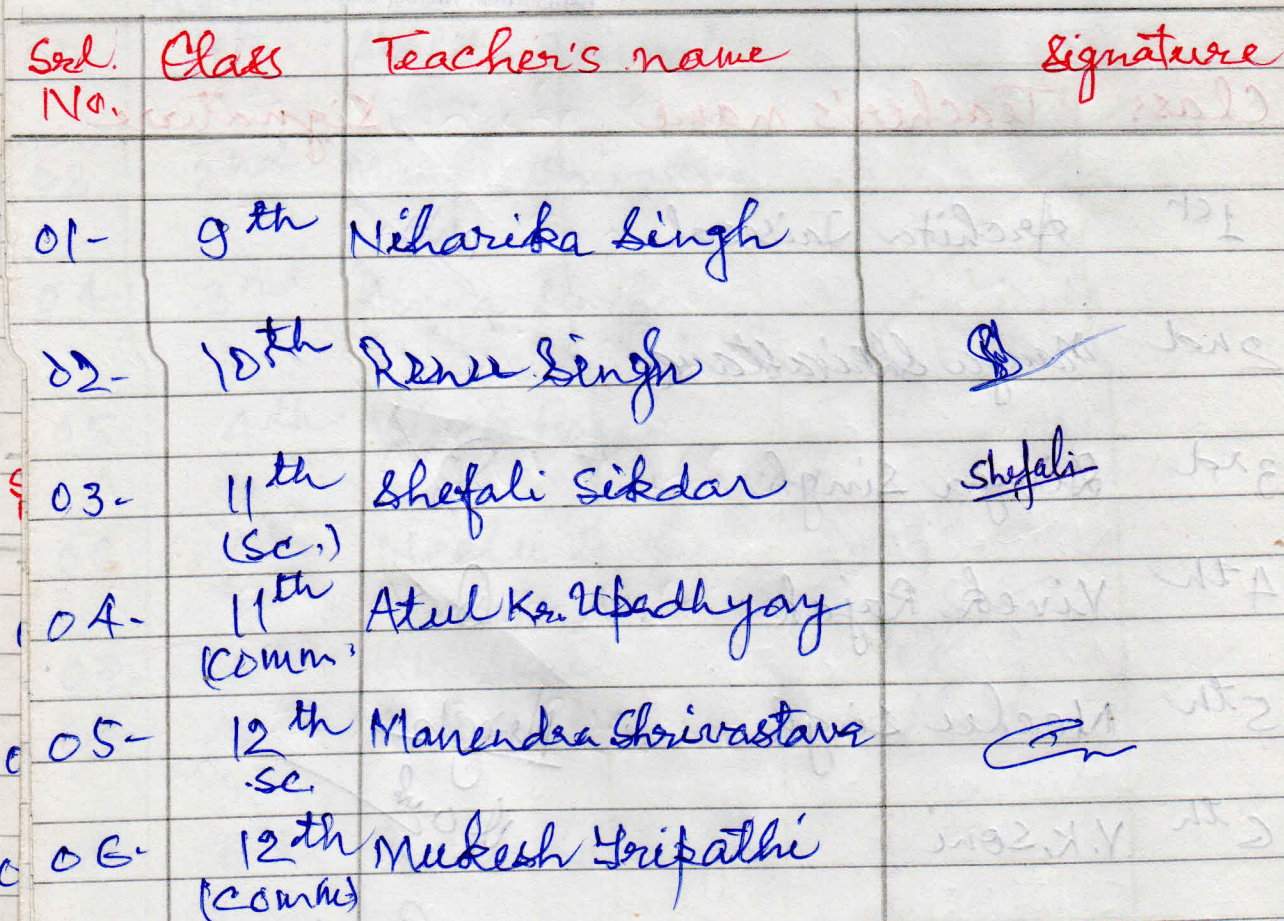 Srl. Class Teacher's name Signature
No.
01- 9th Niharika Singh
02- 10th Renu Singh
03- 11th Shefali Sikdar Shefali
(Sc.)
04- 11th Atul Kr. Upadhyay
(Comm.
05- 12th Manendra Shrivastava
.Sc.
06- 12th Mukesh Tripathi
(Comm)